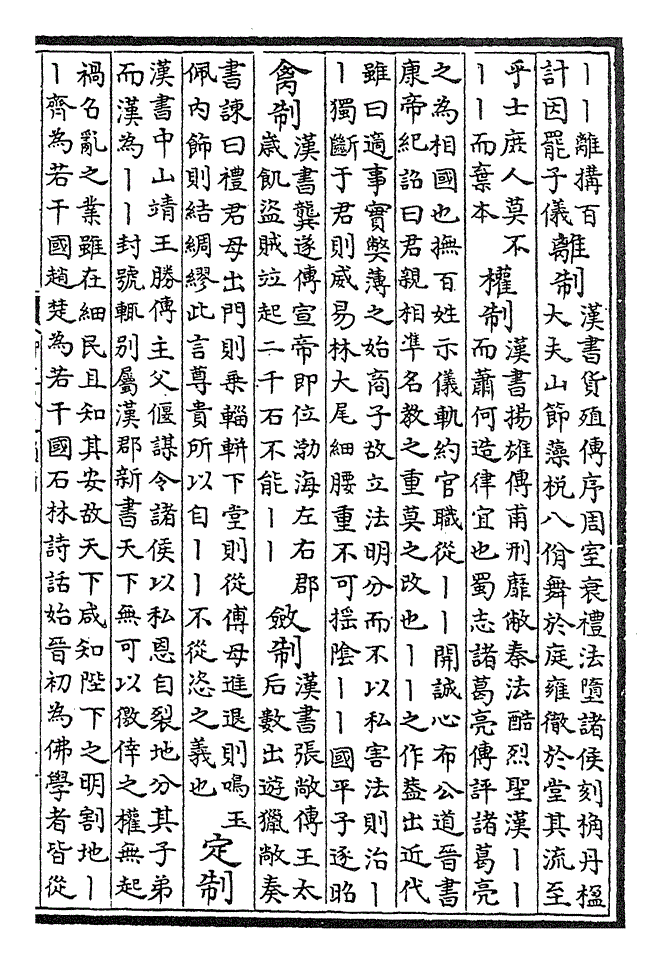 丨丨離搆百
計因罷子儀
離制
漢書貨殖傳序周室衰禮法墮諸侯刻桷丹楹
大夫山節藻梲八佾舞於庭雍徹於堂其流至
乎士庶人莫不
丨丨而棄本
權制
漢書揚雄傳甫刑靡敝秦法酷烈聖漢丨丨
而蕭何造律宜也蜀志諸葛亮傳評諸葛亮
之為相國也撫百姓示儀軌約官職從丨丨開誠心布公道晉書
康帝紀詔曰君親相準名教之重莫之改也丨丨之作葢出近代
雖曰適事實弊薄之始商子故立法明分而不以私害法則治丨
丨獨斷于君則威易林大尾細腰重不可揺陰丨丨國平子逐昭
禽制
漢書龔遂傳宣帝即位渤海左右郡
嵗飢盜賊竝起二千石不能丨丨
斂制
漢書張敞傳王太
后數出遊獵敞奏
書諫曰禮君母出門則乗輜軿下堂則從傅母進退則鳴玉
佩内飾則結綢繆此言尊貴所以自丨丨不從恣之義也
定制
漢書中山靖王勝傳主父偃謀令諸侯以私恩自裂地分其子弟
而漢為丨丨封號輒别屬漢郡新書天下無可以徼倖之權無起
禍召亂之業雖在細民且知其安故天下咸知陛下之明割地丨
丨齊為若干國趙楚為若干國石林詩話始晉初為佛學者皆從